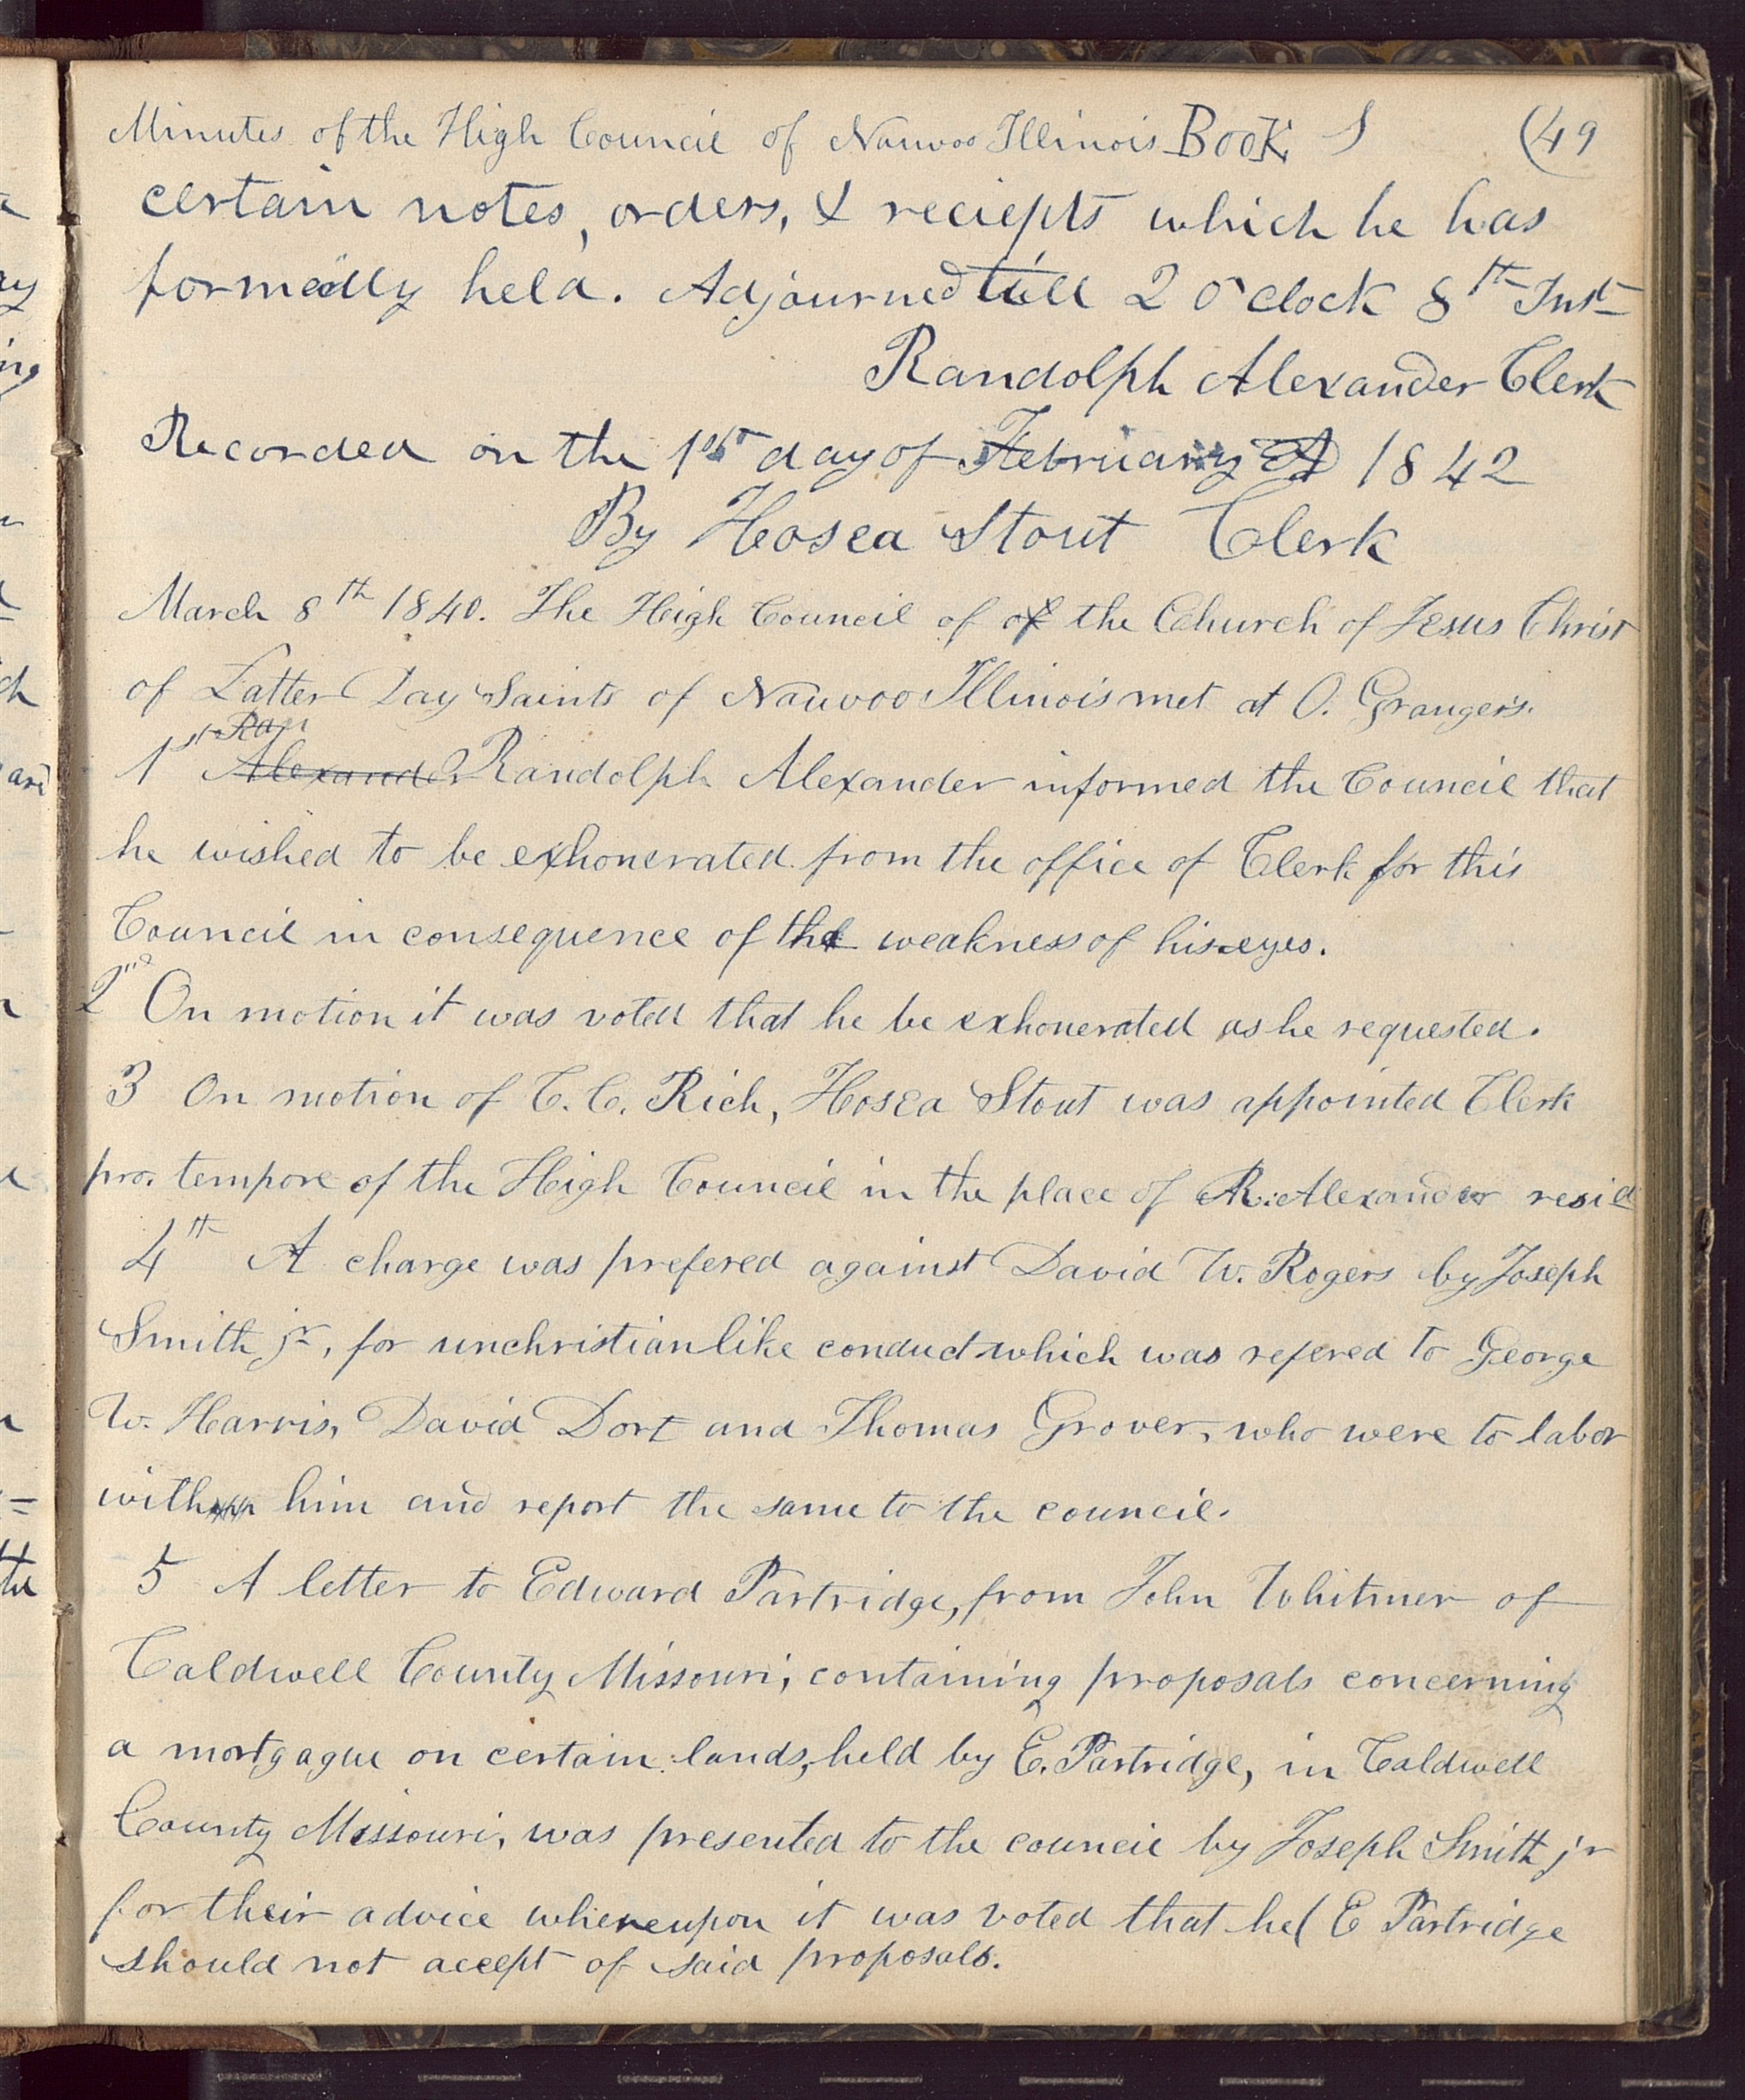 Minutes of the High Council of Nauvoo Illinois Book 1 (49
certain notes, orders, & reciepts which he has
formally held. Adjourned till 2 o'clock 8th Inst
Randolph Alexander Clerk
Recorded on the 1st day of February AD 1842
By Hosea Stout Clerk
March 8th 1840. The High Council of of the Church of Jesus Christ
of Latter Day Saints of Nauvoo Illinois met at O. Granger's.
Ran
1st Alexander Randolph Alexander informed the Council that
he wished to be exhonerated from the office of Clerk for this
Council in consequence of the weakness of his eyes.
2nd On motion it was voted that he be exhonerated as he requested.
3 On motion of C. C. Rich, Hosea Stout was appointed Clerk
pro. tempore of the High Council in the place of R. Alexander resid
4th A charge was prefered against David W. Rogers by Joseph
Smith jr, for unchristianlike conduct which was refered to George
W. Harris, David Dort and Thomas Grover, who were to labor
with him and report the same to the council.
5 A letter to Edward Partridge, from John Whitmer of
Caldwell County Missouri, containing proposals concerning
a mortgague on certain lands, held by E. Partridge, in Caldwell
County Missouri, was presented to the council by Joseph Smith jr
for their advice whereupon it was voted that he ( E Partridge
should not accept of said proposals.